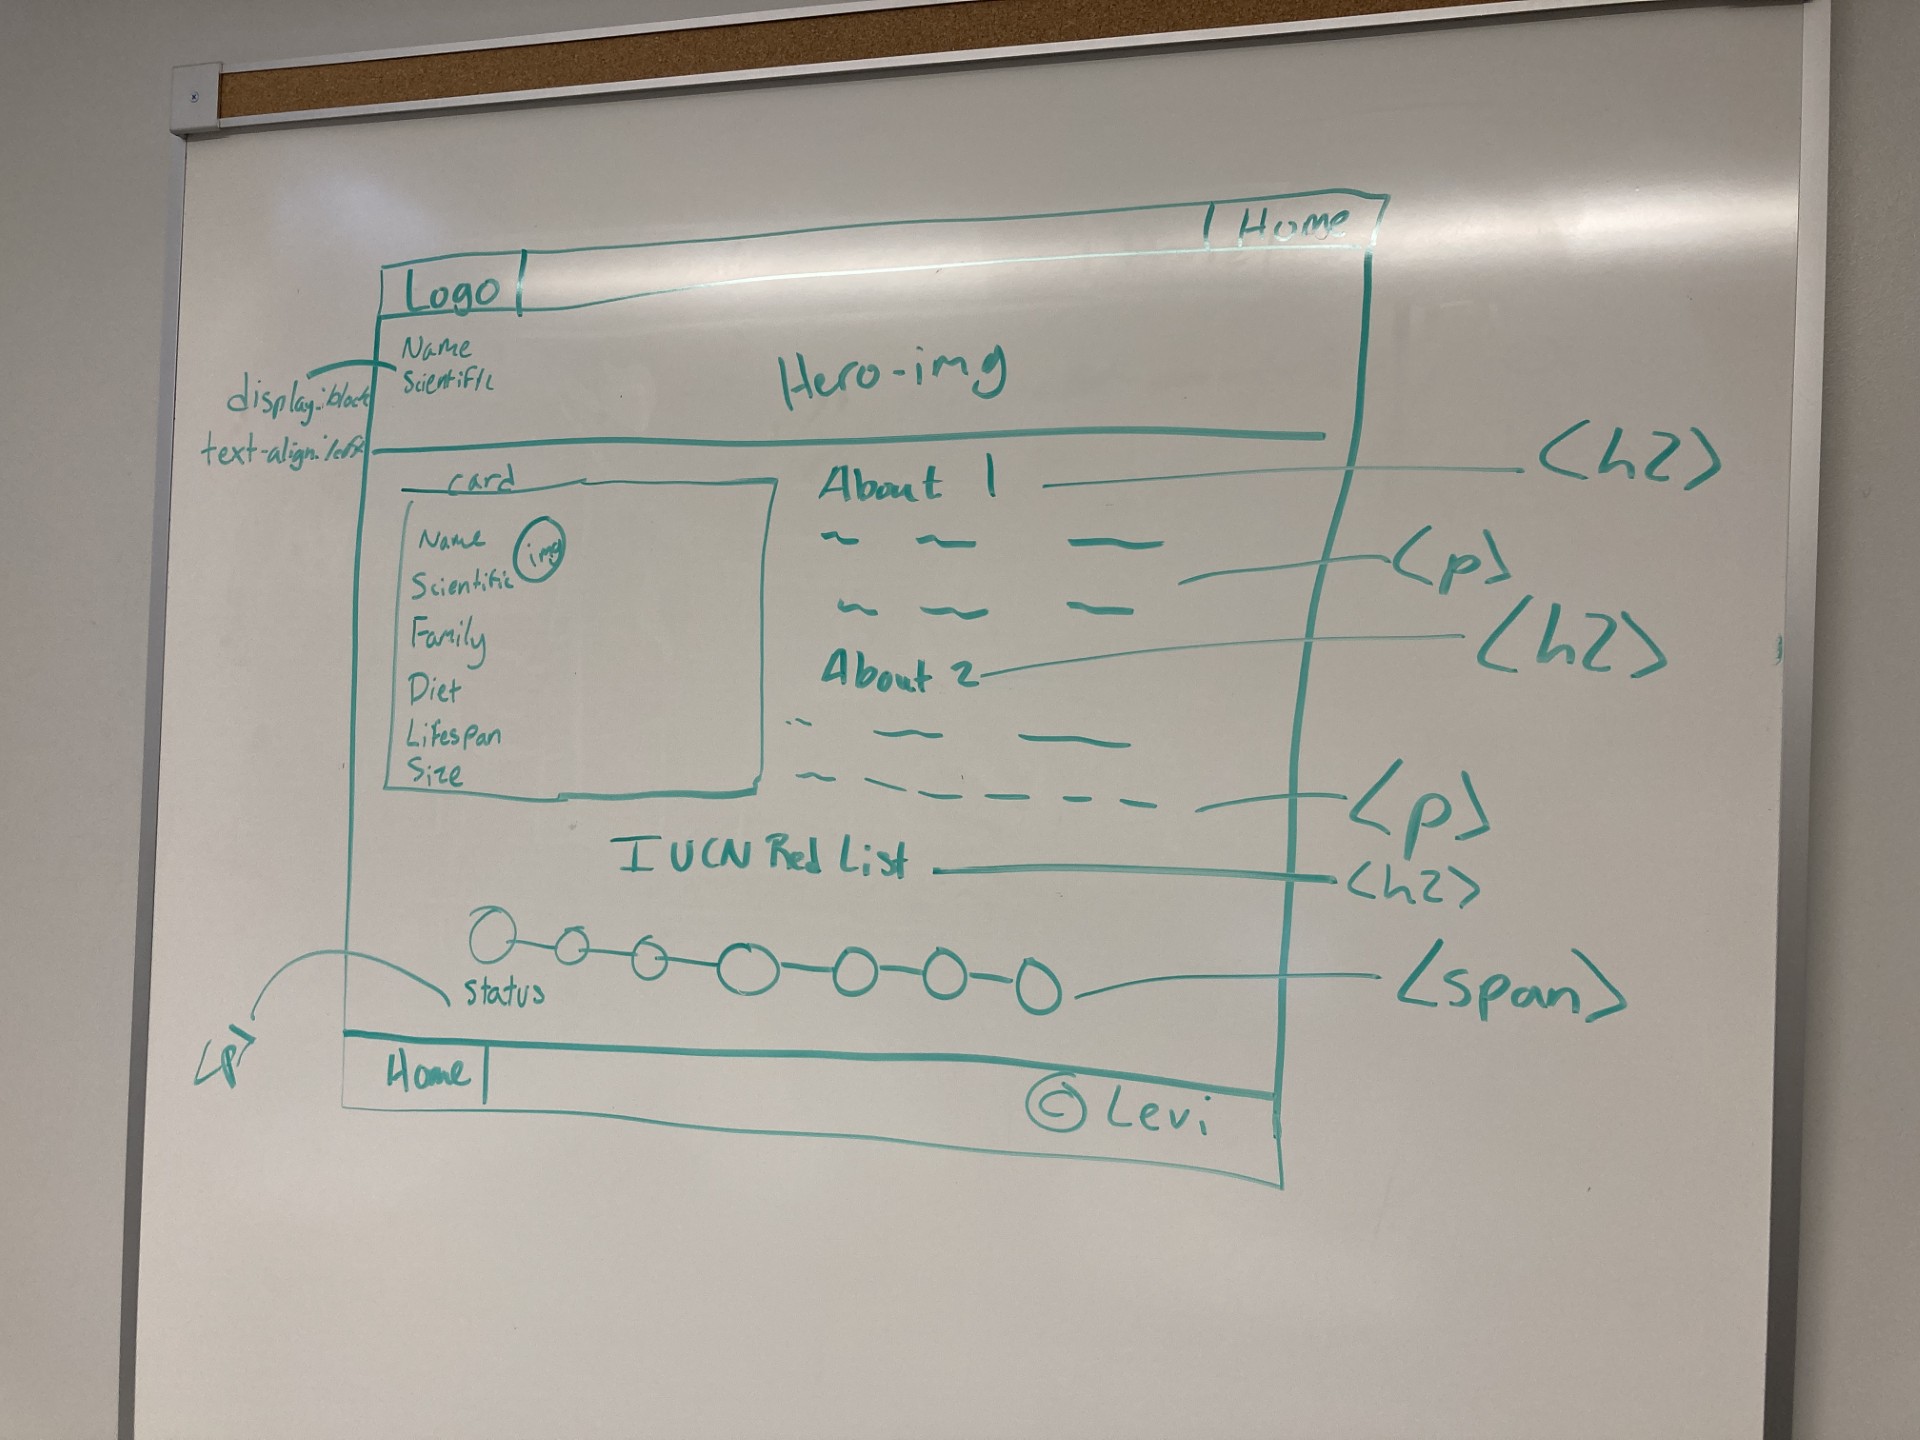 Logo
Home
Name
Scientific
Hero-img
display:block
text-align:left
card
Name
img
Scientific
Family
Diet
Lifespan
Size
About 1
<h2>
<p>
About 2
<h2>
<p>
IUCN Red List
<h2>
<span>
Status
<p>
Home
© Levi